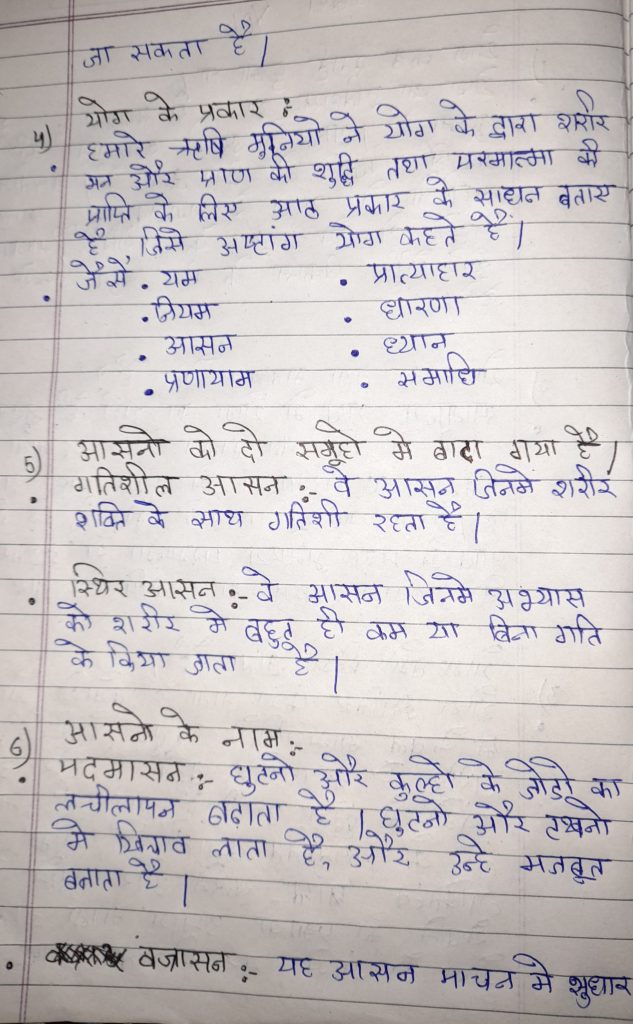 जा सकता है|
योग के प्रकार :-
4) हमारे ऋषि मुनियो ने योग के द्वारा शरीर
मन और प्राण की शुद्धि तथा परमात्मा की
प्राप्ति के लिए आठ प्रकार के साधन बताए
है, जिसे अष्टांग योग कहते है|
जैसे • यम • प्रात्याहार
• नियम • धारणा
• आसन • ध्यान
• प्रणायाम • समाधि
5) आसनो को दो समूहो मे बाटा गया है|
• गतिशील आसन :- वे आसन जिनमे शरीर
शक्ति के साथ गतिशी रहता है|
• स्थिर आसन :- वे आसन जिनमे अभ्यास
को शरीर मे बहुत ही कम या बिना गति
के किया जाता है|
6) आसनो के नाम :-
• पदमासन :- घुटनो और कुल्हो के जोडो का
लचीलापन बढ़ाता है| घुटनो और टखनो
मे खिचाव लाता है, और उन्हे मजबूत
बनाता है|
• वज्रासन :- यह आसन पाचन मे सुधार